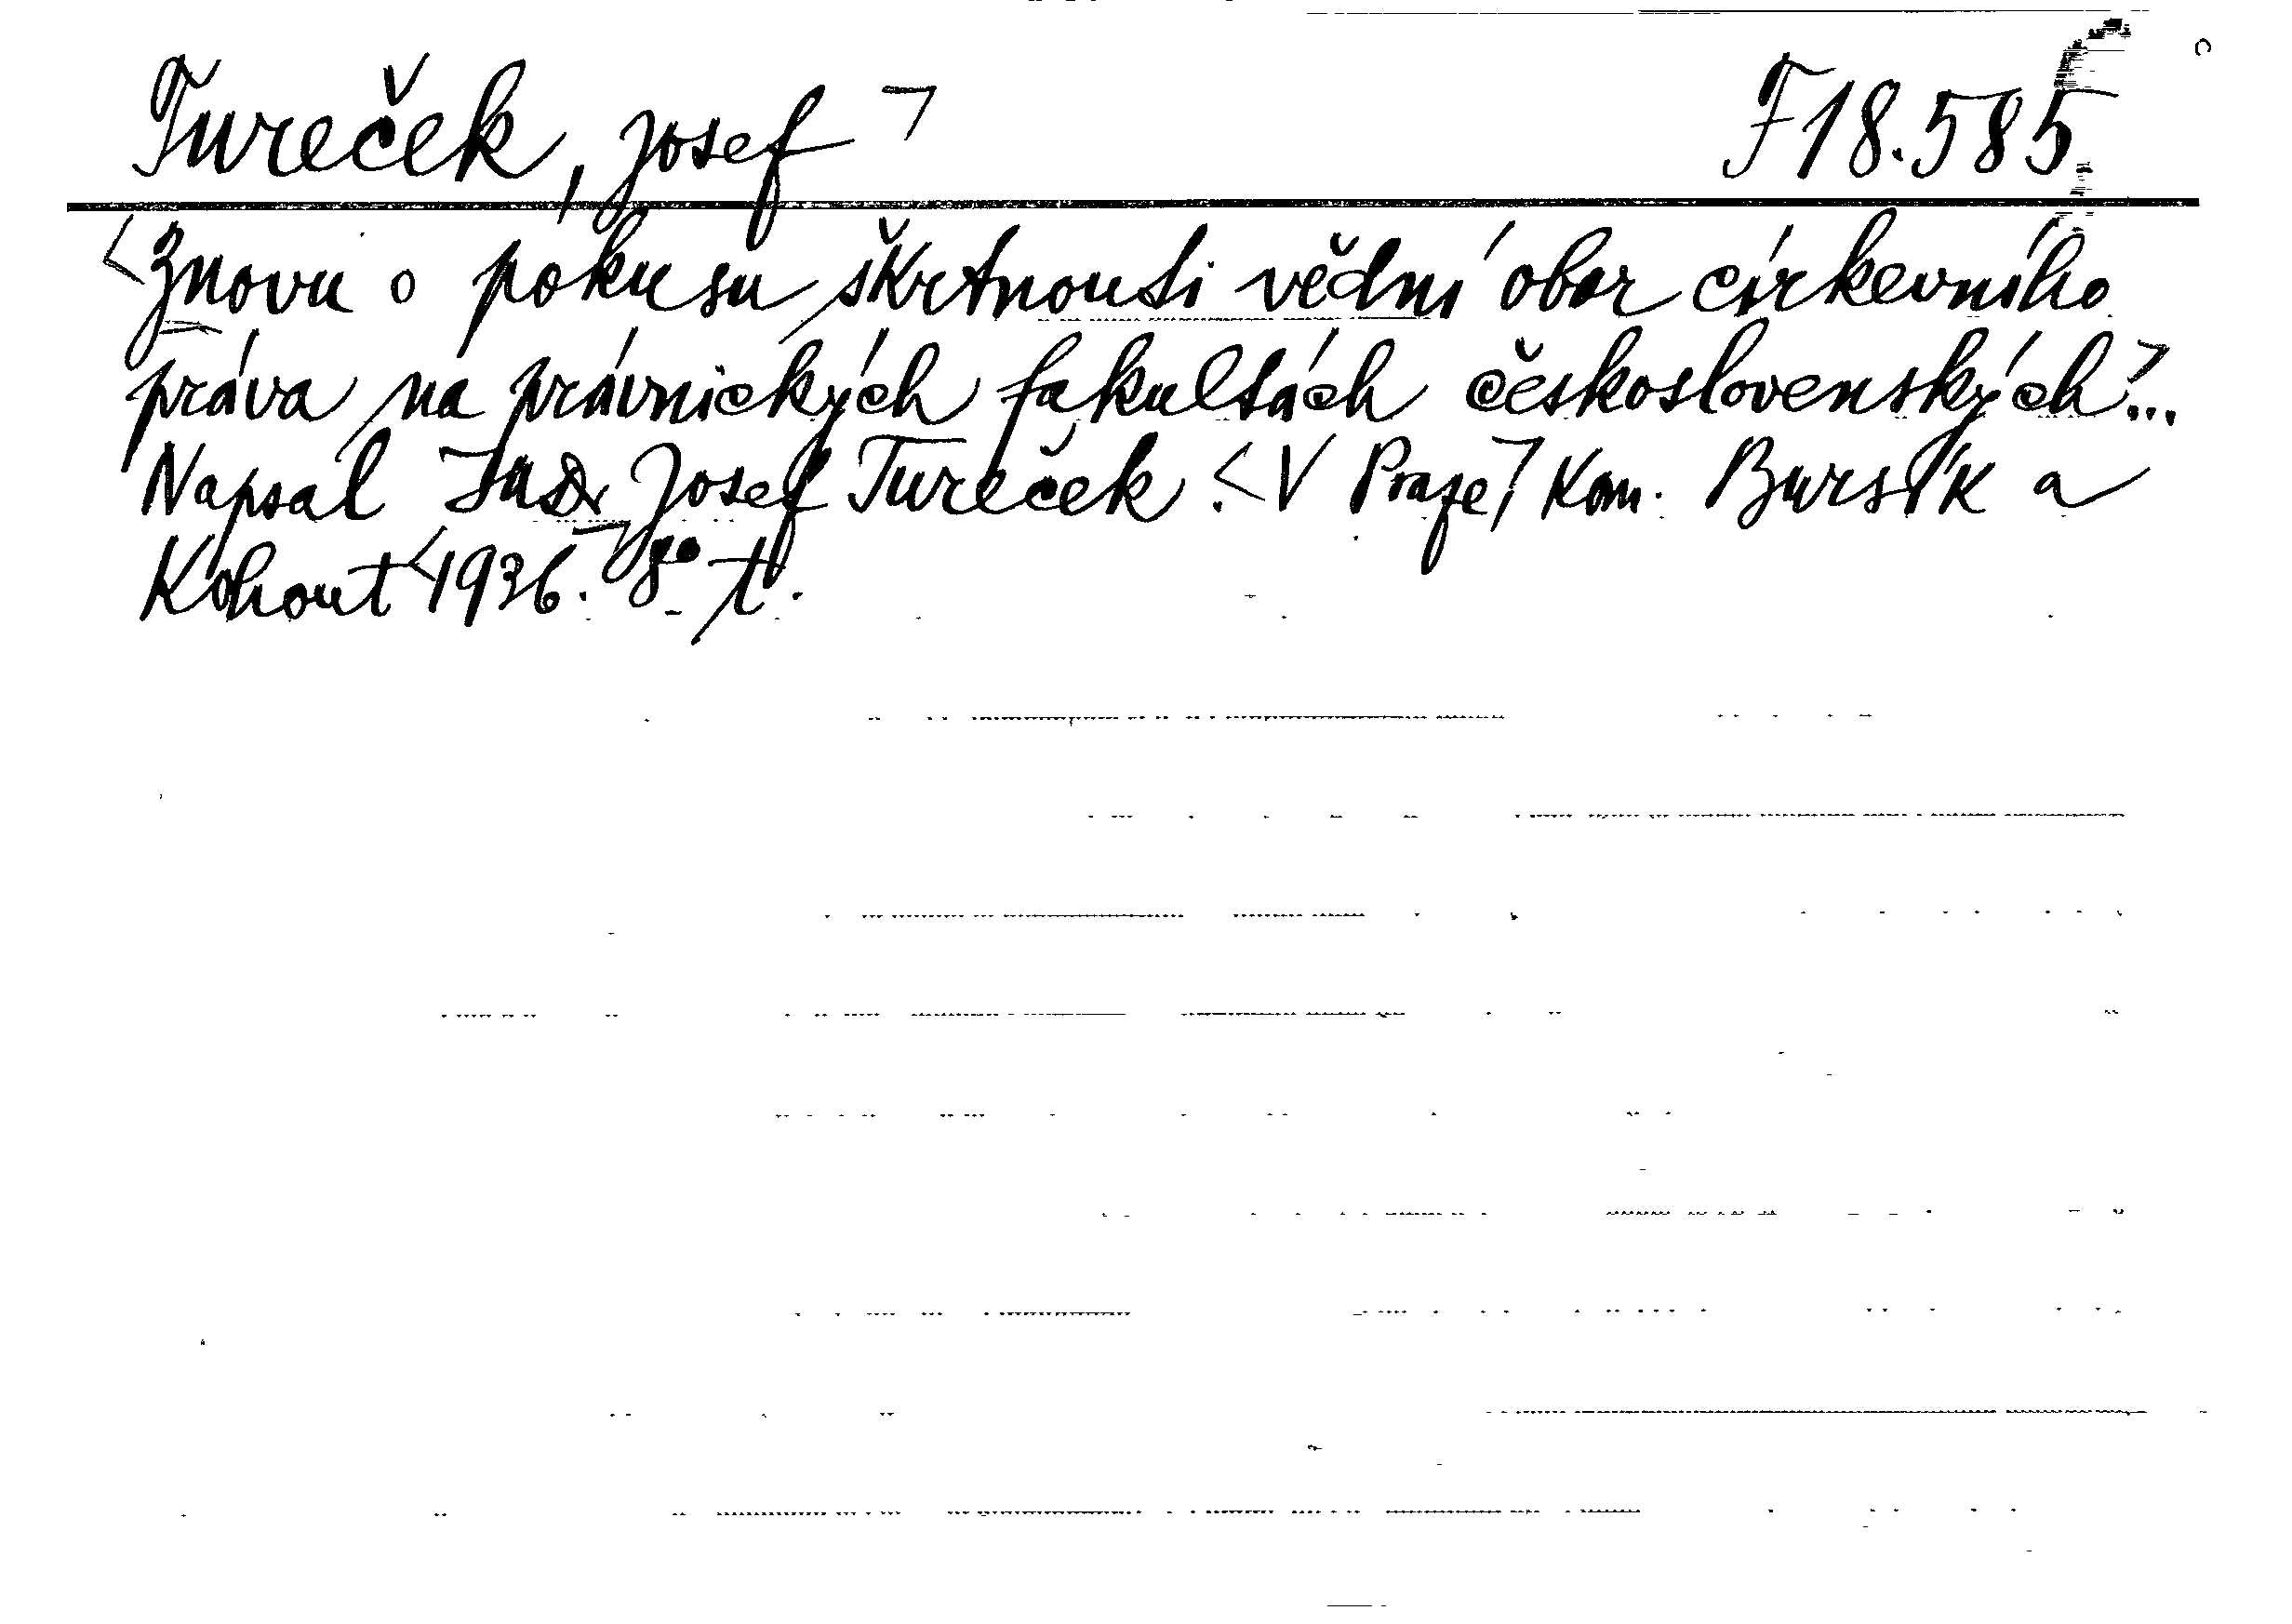 Tureček, Josef F 18.585
Znovu o pokusu škrtnouti vědní obor církevního
práva na právnických fakultách československých?...
Napsal JUDr Josef Tureček. V Praze, Kom. Bursík a
Kohout 1936. 8° t.